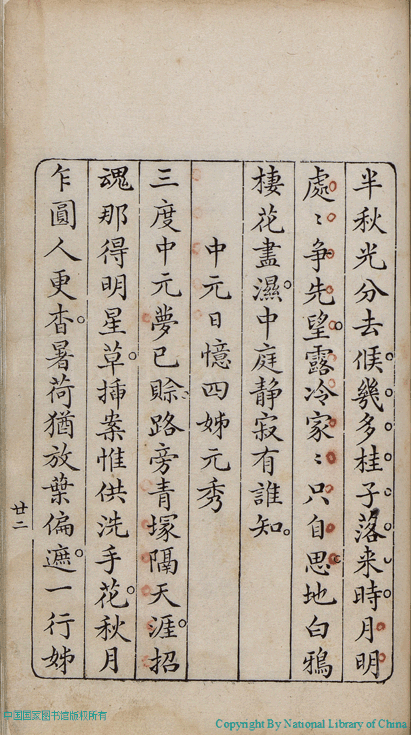 半秋光分去候幾多桂子落来時月明
處〻争先望露冷家〻只自思地白鴉
棲花盡濕中庭静寂有誰知
中元日憶四姊元秀
三度中元夢已賒路旁青塚隔天涯招
魂那得明星草揷案惟供洗手花秋月
乍圓人更杳暑荷猶放葉偏遮一行姊
廿二
中国国家图书馆版权所有
Copyright By National Library of China